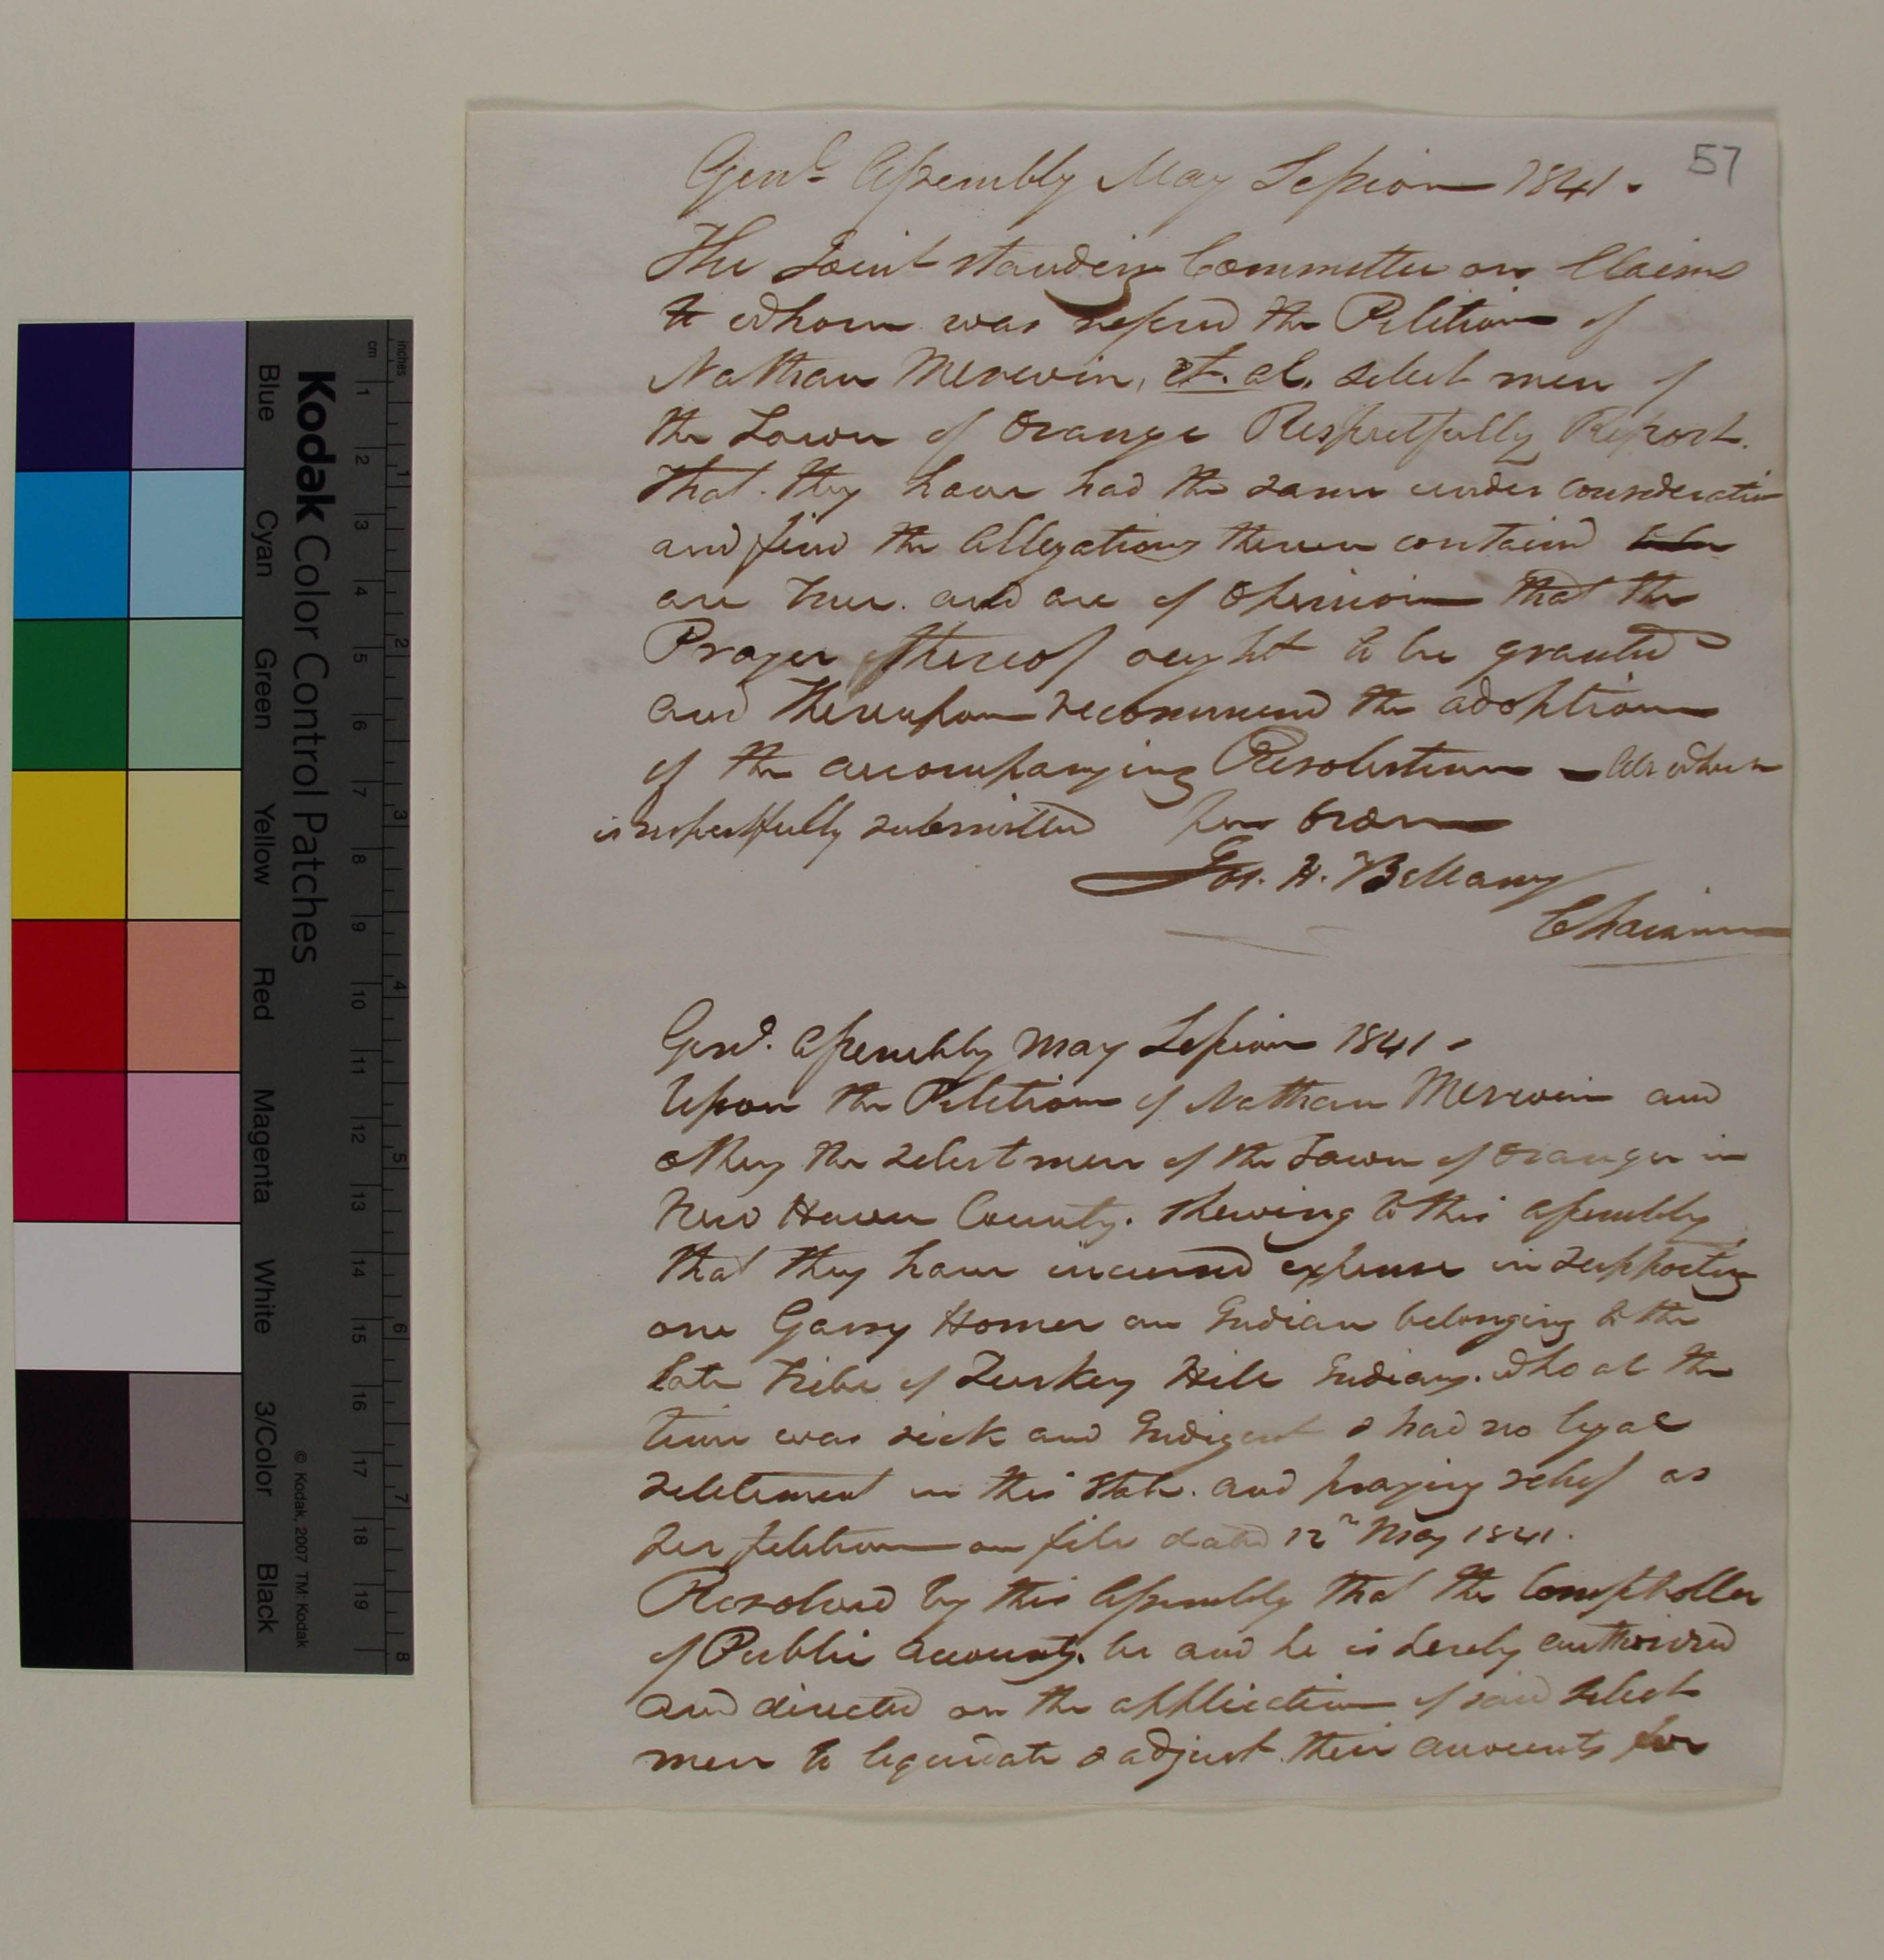 57
Genl. Assembly May Session 1841.
The Joint standing Committee on Claims
to whom was referd the Petition of
Nathan Merwin, et. al. select men of
the Town of Orange Respectfully Report.
That they have had the same under consideration
and find the Allegations therein contained
are true. and are of Opinion that the
Prayer thereof ought to be granted
and thereupon recommend the adoption
of the accompanying Resolution – All which
is respectfully submitted per order
Jos. H. Bellamy
Chairman
Genl. Assembly May Session 1841.
Upon the Petition of Nathan Merwin and
others the select men of the Town of Orange in
New Haven County. Shewing to this Assembly
that they have incurred expense in supporting
one Garry Homer an Indian belonging to the
late Tribe of Turkey Hill Indians. who at the
time was sick and Indigent & had no legal
settlement in this State. and praying relief as
per petition on file dated 12th May 1841.
Resolved by this Assembly that the Comptroller
of Public Accounts. be and he is hereby authorised
and directed on the application of said Select
men to liquidate & adjust their accounts for
Kodak Color Control Patches
Blue Cyan Green Yellow Red Magenta White 3/Color Black
© Kodak, 2007 TM: Kodak
cm 1 2 3 4 5 6 7 8 9 10 11 12 13 14 15 16 17 18 19
inches 1 2 3 4 5 6 7 8